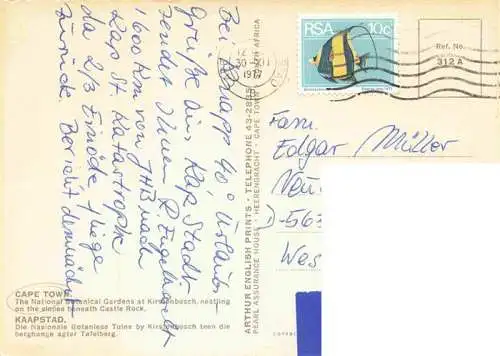 Bei knapp 40° Urlaubs-
grüße aus Kapstadt
sendet Ihnen R. Engelhardt
1600 Km von JHB nach
Kap St. Katastrophe
da 2/3 Einöde fliege
zurück. Bericht demnächst
CAPE TOWN.
The National Botanical Gardens at Kirstenbosch, nestling
on the slopes beneath Castle Rock.
KAAPSTAD.
Die Nasionale Botaniese Tuine by Kirstenbosch teen die
berghange agter Tafelberg.
ARTHUR ENGLISH PRINTS - TELEPHONE 43-28
PEARL ASSURANCE HOUSE - HEERENGRACHT - CAPE TOWN - SOUTH AFRICA
12
30 XII
1977
RSA 10c
Ref. No.
312 A
Fam.
Edgar Müller
Neu
D-563
Wes